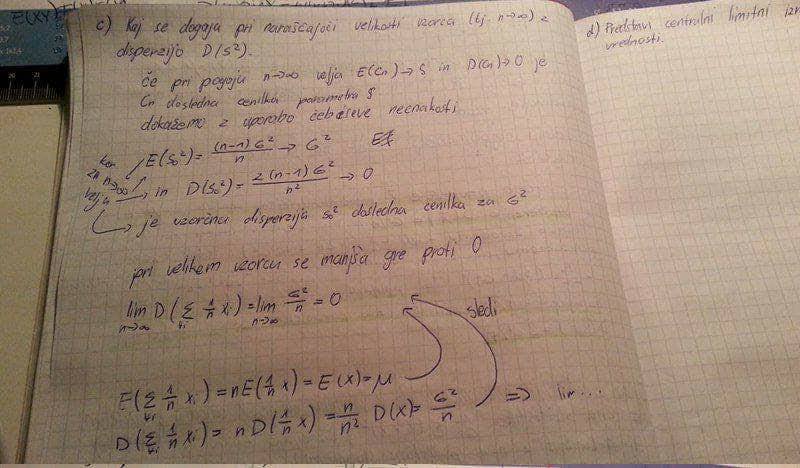 c) Kaj se dogaja pri naraščajoči velikosti vzorca (tj. n→∞) z
disperzijo D(S²).
če pri pogoju n→∞ velja E(Cn)→ζ in D(Cn)→0 je
Cn dosledna cenilka parametra ζ
dokažemo z uporabo čebiševe neenakosti
ker
za n→∞
velja
E(S₀²) = (n-1)σ²/n → σ²
in D(S₀²) = 2(n-1)σ²/n² → 0
je vzorčna disperzija s₀² dosledna cenilka za σ²
pri velikem vzorcu se manjša gre proti 0
lim n→∞ D(Σ 1/n xᵢ) = lim n→∞ σ²/n = 0
sledi
E(Σ 1/n xᵢ) = nE(1/n x) = E(x) = μ
D(Σ 1/n xᵢ) = nD(1/n x) = n/n² D(x) = σ²/n ⇒ lim...
d) Predstavi centralni limitni
vrednosti.